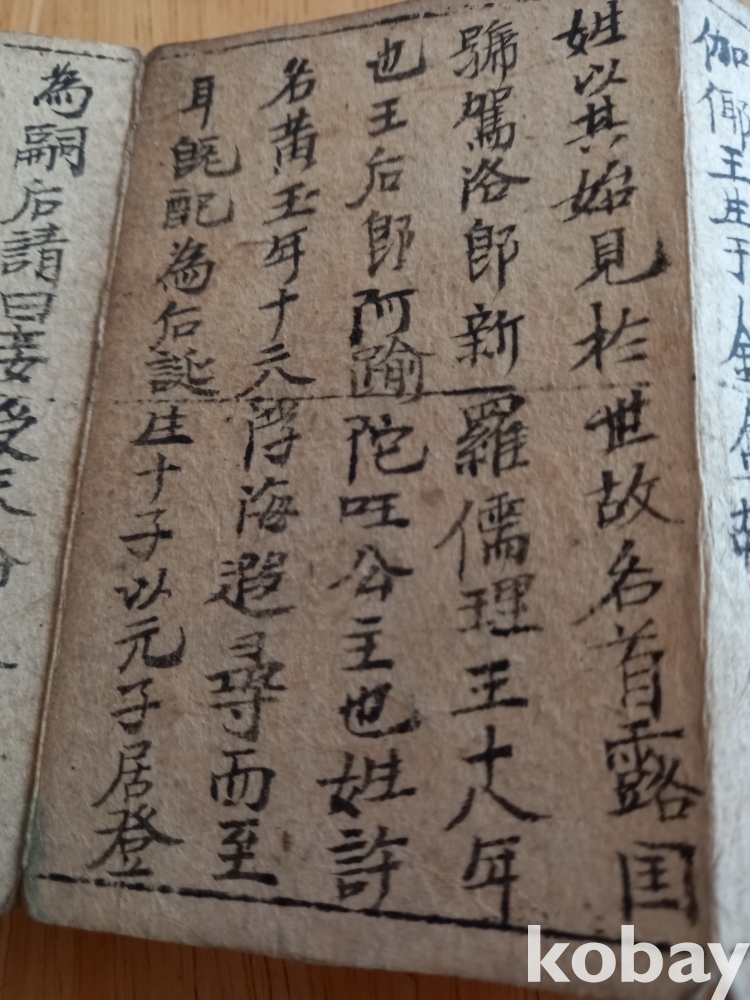 伽倻王生于金
姓以其始見於世故名首露国
號駕洛卽新羅儒理王十八年
也王后卽阿踰陀国公主也姓許
名黃玉年十六浮海遐尋而至
耳旣配為后誕生十子以元子居登
為嗣后請曰妾
kobay